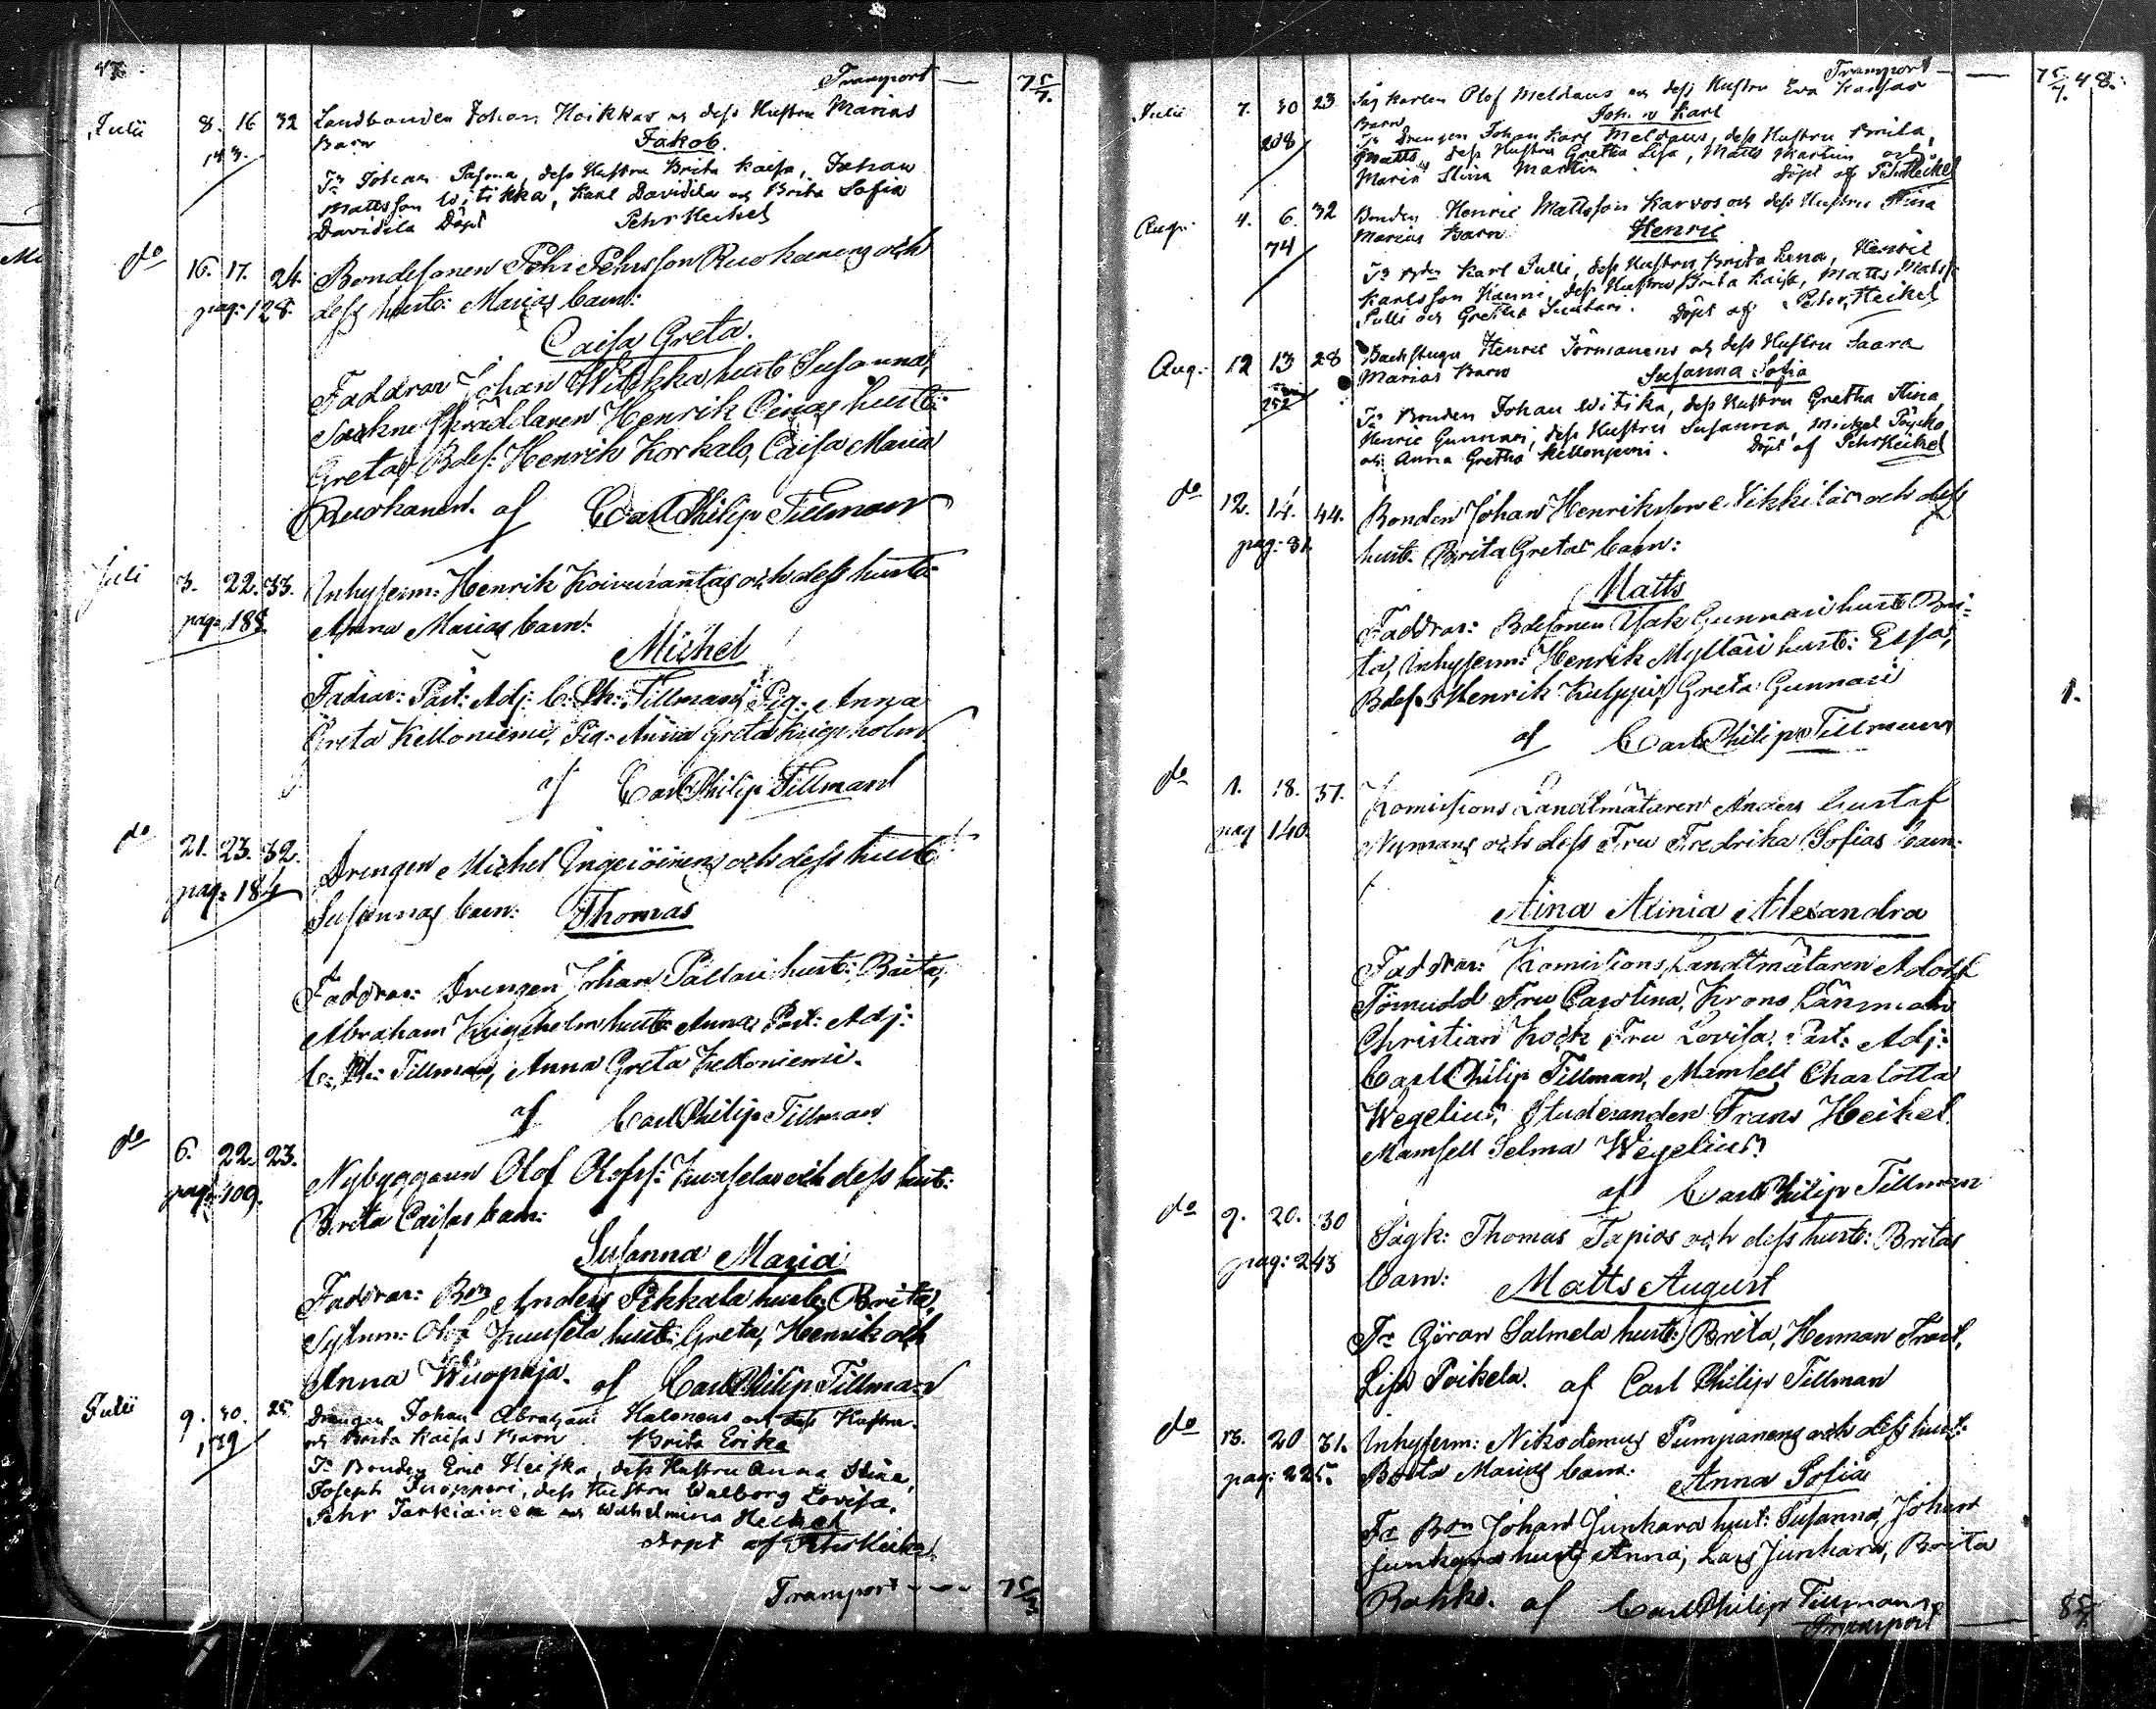 47.
Transport — 75/7.
Julii 8. 16 32 Landbonden Johan Heikkas och dess Hustru Marias
143. Barn Jakob.
Fr Johan Pasma, dess Hustru Brita Kaisa, Johan
Mattsson Witikka, Karl Davidila och Brita Sofia
Davidila Döpt Pehr Heikel
do 16. 17. 24. Bondesonen Pehr Pehrsson Ruokanens och
pag: 128. dess hust: Marias barn:
Caisa Greta.
Faddrar Johan Witikka hust: Susanna,
Sockne Skräddaren Henrik Oinas hust:
Greta, Bdes: Henrik Korkalo, Caisa Maria
Ruokanen. af Carl Philip Tillman
Juli 3. 22. 33. Inhysesm: Henrik Koivurantas och dess hustr:
pag: 188 Anna Marias barn:
Michel
Fadrar: Past: Adj: C. Ph: Tillman, Pig: Anna
Greta Kelloniemi, Pig: Anna Greta Krigsholm
af Carl Philip Tillman
do 21. 23. 32. Drengen Michel Ingeröinens och dess hust:
pag: 184 Susannas barn: Thomas
Faddrar: Drengen Johan Pallari hust: Brita,
Abraham Krigsholm hust: Anna, Past: Adj:
C: Ph: Tillman, Anna Greta Kelloniemi.
af Carl Philip Tillman
do 6. 22. 23. Nybyggaren Olof Olofss: Kuuselas och dess hust:
pag: 109. Brita Caisas barn:
Susanna Maria
Faddrar: Bon Anders Pekkala hust: Brita,
Sytnm: Olof Kuusela hust: Greta, Henrik och
Anna Wuopaja. af Carl Philip Tillman
Julii 9. 30. 25 Drengen Johan Abraham Halonens och dess Hustru
189 och Brita Kaisas Barn Brita Erika
Fr Bonden Eric Heiska, dess Hustru Anna Stina,
Joseph Suopperi, dess Hustru Walborg Lovisa,
Pehr Tarkiainen och Wilhelmina Heikel
döpt af Pehr Heikel
Transport - - - 75/7.
Transport — 75/7. 48.
Julii 7. 30 23 Sågkarlen Olof Meldaus och dess Hustru Eva Kaisas
208 Barn Johan Karl
Fr Drengen Johan Karl Meldaus, dess Hustru Brita,
Matts, dess Hustru Gretha Lisa, Matts Martin och
Maria Stina Martin döpt af Pehr Heikel
Aug: 4. 6. 32 Bonden Henric Mattsson Karvos och dess Hustru Stina
74 Marias Barn Henric
Fr Bdn Karl Julli, dess Hustru Brita Lena, Henric
Karlsson Kauni, dess Hustru Brita Kaisa, Matts Matss:
Julli och Gretha . Döpt af Pehr Heikel
Aug: 12 13 28 Backstugu Henric Törmänens och dess Hustru Saara
252 Marias Barn Susanna Sofia
Fr Bonden Johan Witika, dess Hustru Gretha Stina,
Henric Gunnari, dess Hustru Susanna, Mickel Pöyckö,
och Anna Gretha Kellonpuri. Döpt af Pehr Heikel
do 12. 14. 44. Bonden Johan Henriksson Nikkiläs och dess
pag: 81. hust: Brita Gretas barn:
Matts
Faddrar: Bdesonen Isak Gunnari hust: Bri-
ta, Inhysesm: Henrik Mylläri hust: Elsa,
Bdes: Henrik Kulppi, Greta Gunnari
1.
af Carl Philip Tillman
do 1. 18. 37. Komissions Landtmätaren Anders Gustaf
pag 140. Nymans och dess Fru Fredrika Sofias barn:
Aina Alinia Alexandra
Faddrar: Komissions Landtmätaren Adolf
Törnudd Fru Carolina, Krono Länsman
Christian Kock Fru Lovisa, Past: Adj:
Carl Philip Tillman, Mamsell Charlotta
Wegelius, Studeranden Frans Heikel
Mamsell Selma Wegelius
af Carl Philip Tillman
do 9. 20. 30 Sågk: Thomas Tapios och dess hust: Britas
pag: 243 barn: Matts August
Fr Göran Salmela hust: Brita, Herman Frast,
Lisa Poikela. af Carl Philip Tillman
do 13. 20 31. Inhysesm: Nikodemus Pumpanens och dess hust:
pag: 225. Brita Marias barn: Anna Sofia
Fr Bon Johan Junkara hust: Susanna, Johan
Junkara hust: Anna, Lars Junkara, Brita
Rahko. af Carl Philip Tillman
Transport — 85/7